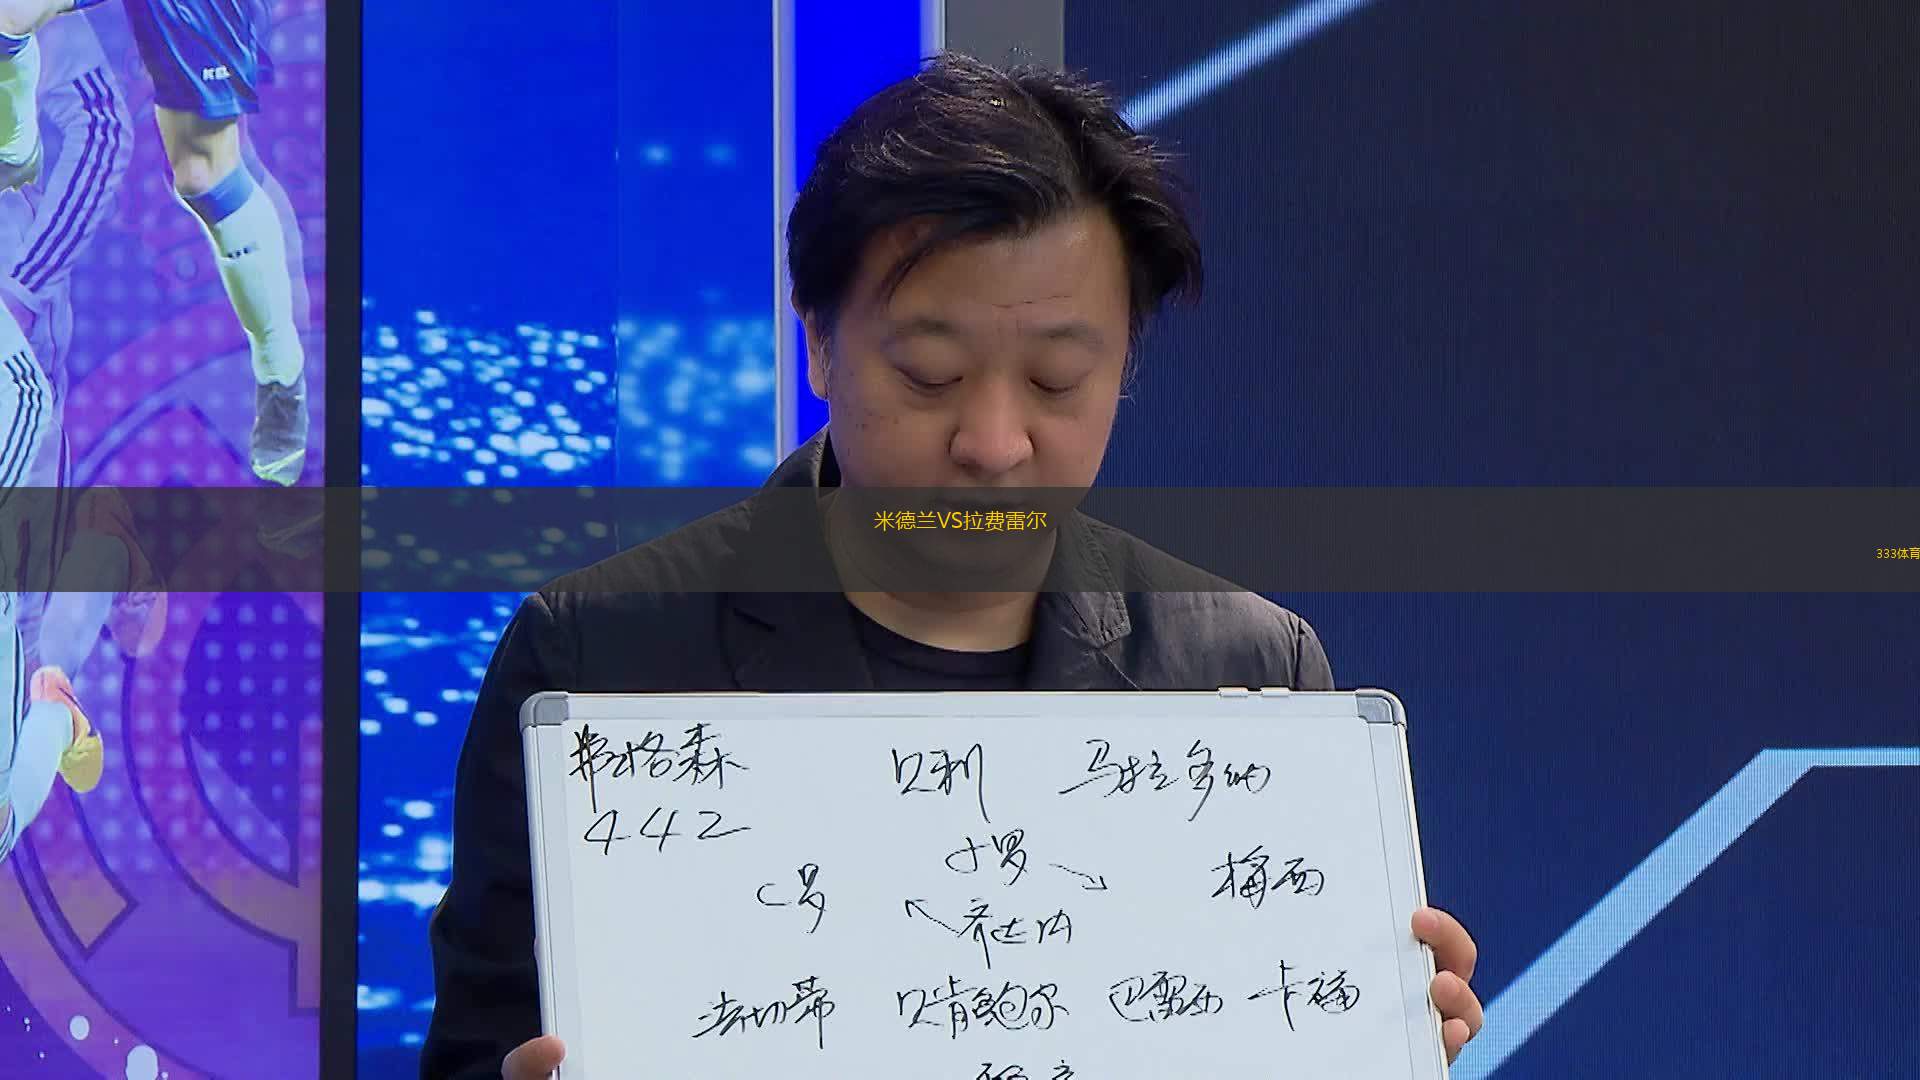 米德兰VS拉费雷尔
333体育
弗格森 贝利 马拉多纳
442
小罗
C罗 梅西
齐达内
法切蒂 贝肯鲍尔 巴雷西 卡福